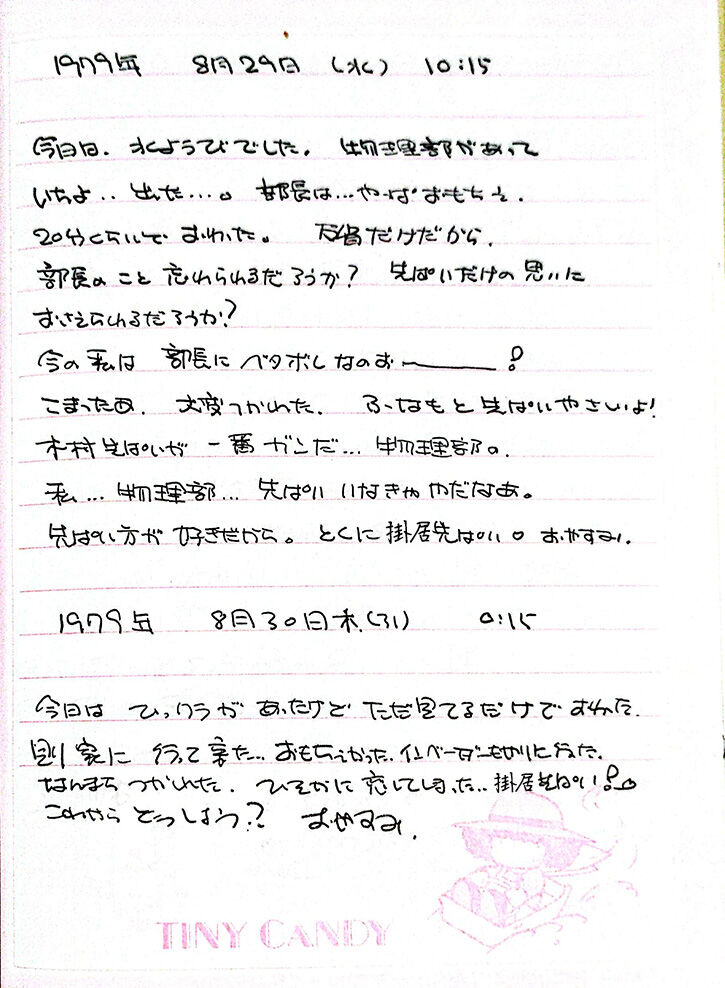 1979年 8月29日 (水) 10:15
今日は、水ようびでした。 物理部があって
いちよ‥出た…。 部長は…やっぱおもちぇ。
20分くらいでおわった。 だけだから、
部長のこと忘れられるだろうか? 先ぱいだけの思いに
おさえられるだろうか?
今の私は 部長にベタボレなのお――!
こまったあ、 大変つかれた。 先ぱいやさいよ!
木村先ぱいが 一番ガンだ…物理部の。
私…物理部…先ぱい いなきゃやだなあ。
先ぱい方が好きだから。 とくに掛居先ぱい。 おやすみ。
1979年 8月30日木(31) 0:15
今日は があったけど ただ見てるだけでおわった。
家に 行って来た…おもちぇかった。インベーダーもやりに行った。
なんまらつかれた。 ひそかに恋してしまった…掛居先ぱい!
これからどうしよう? おやすみ。
TINY CANDY